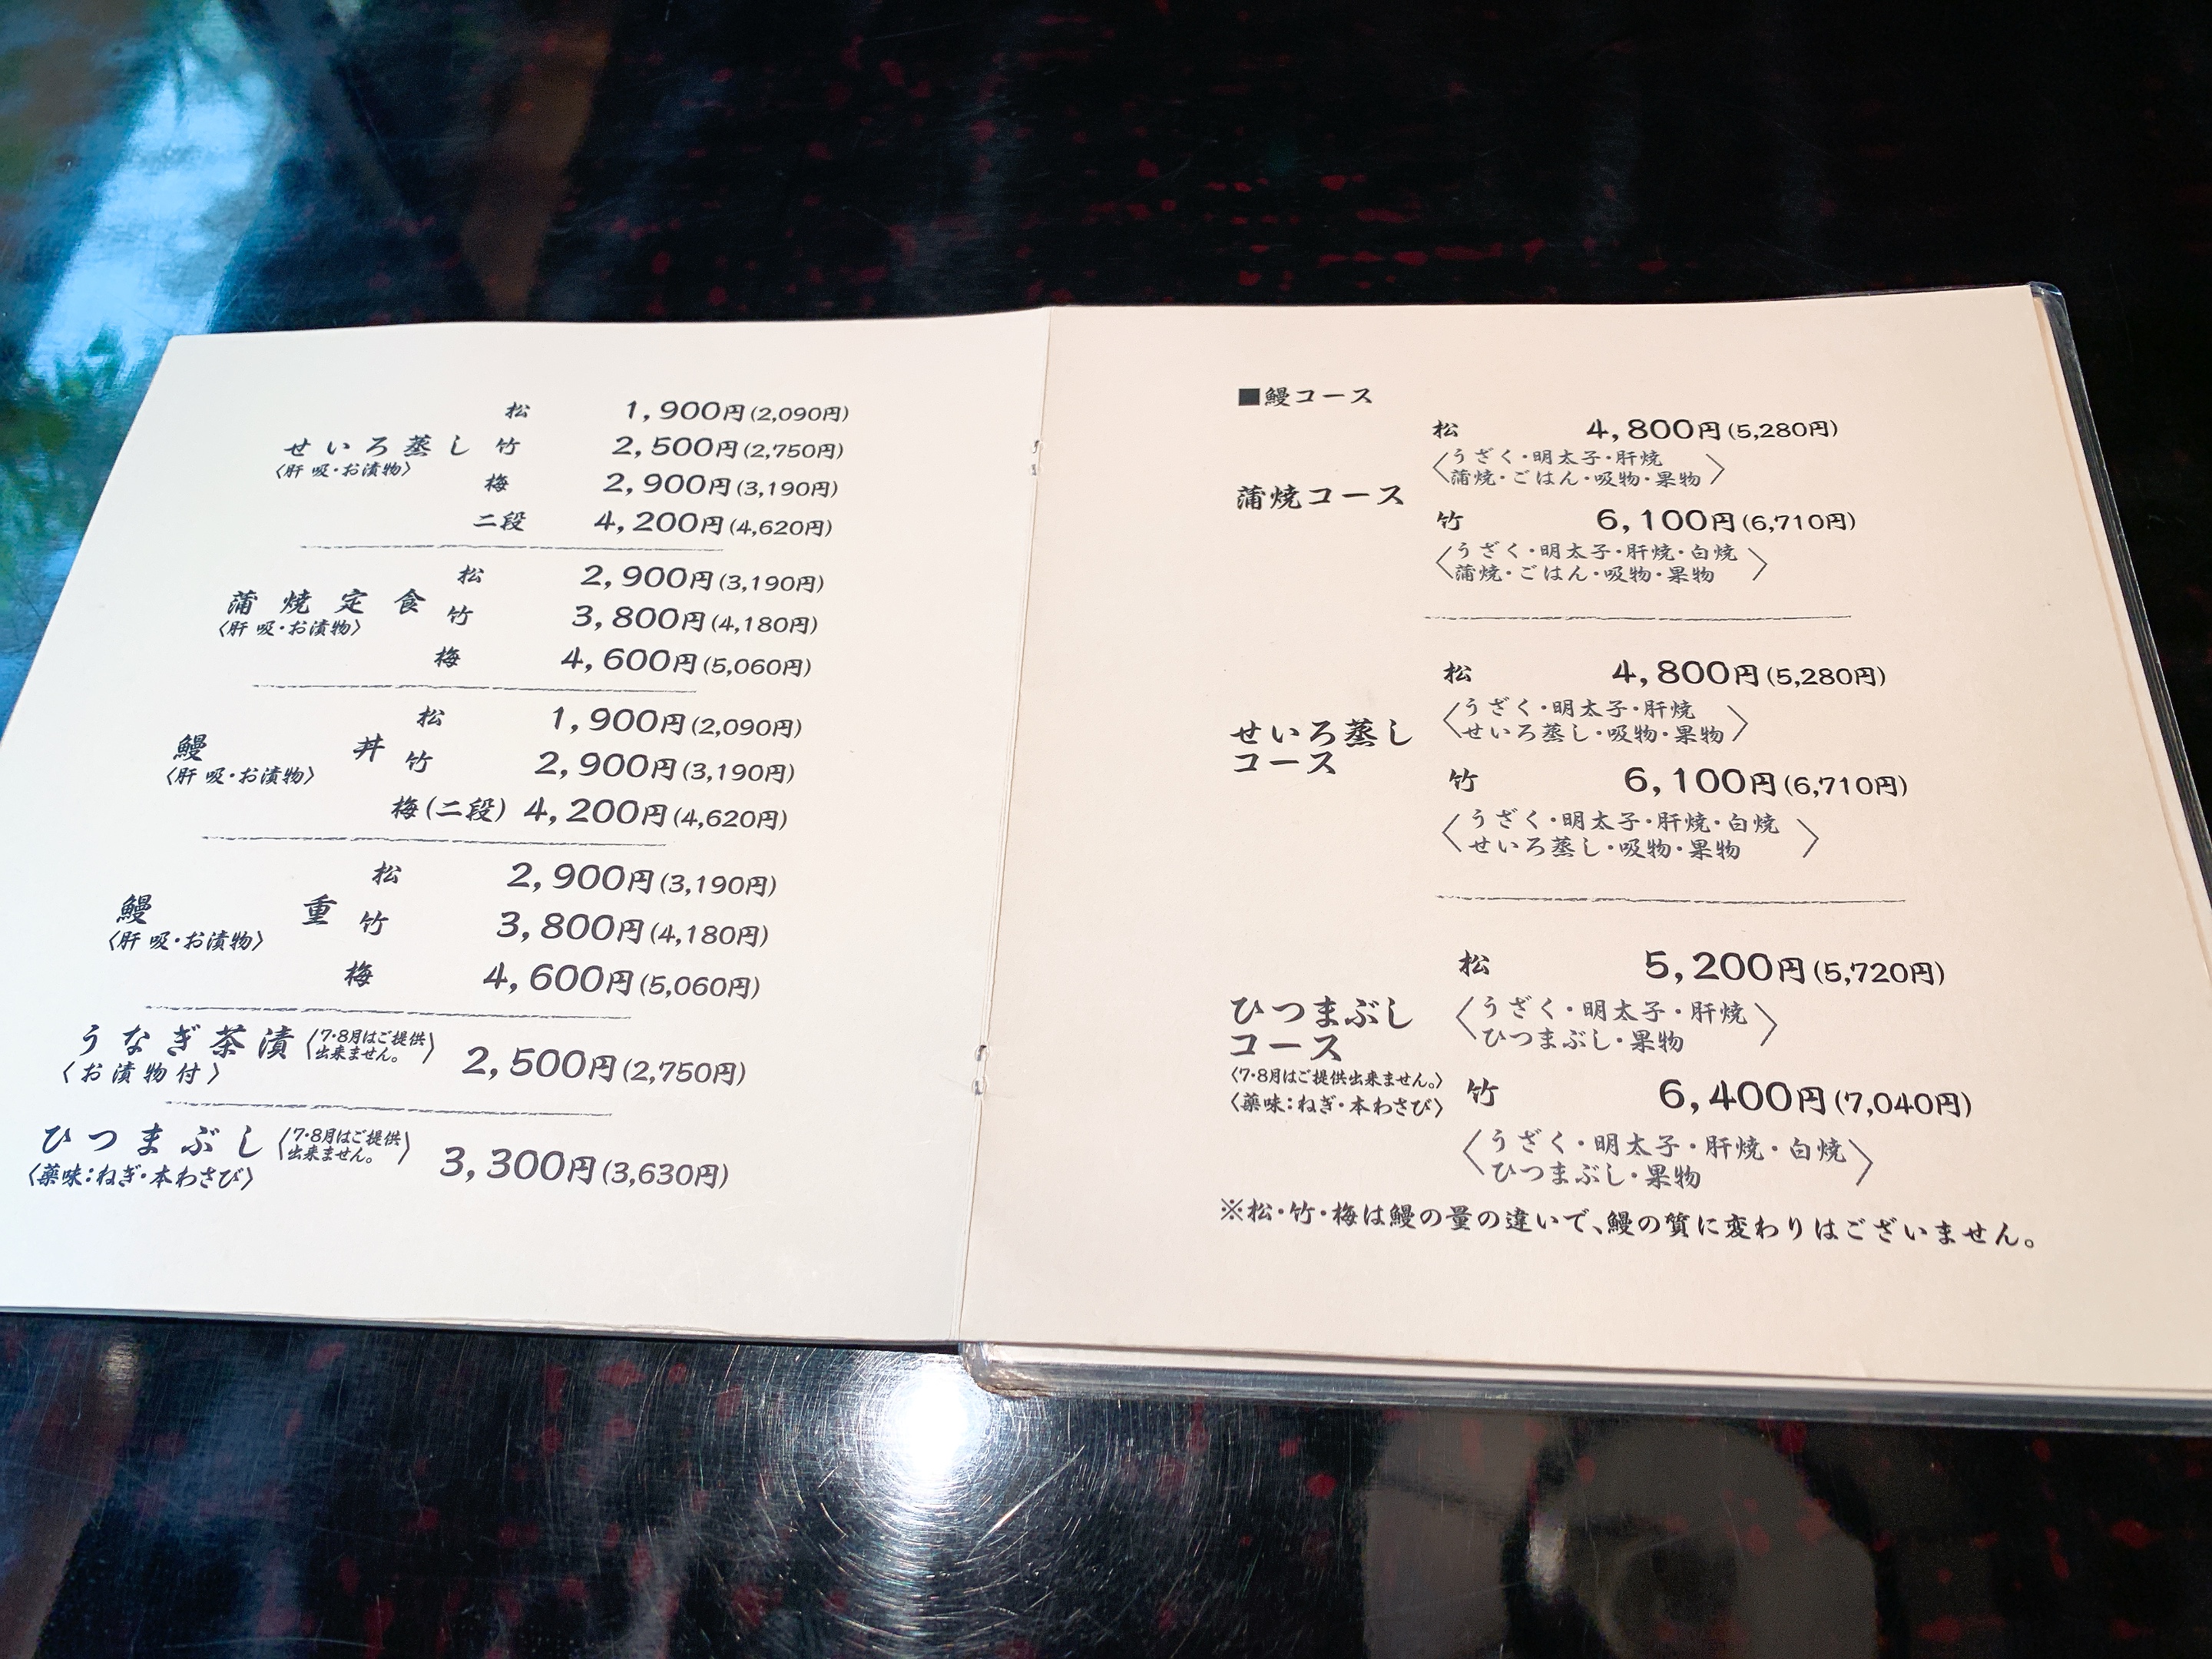 松 1,900円(2,090円)
せいろ蒸し 竹 2,500円(2,750円)
〈肝吸・お漬物〉
梅 2,900円(3,190円)
二段 4,200円(4,620円)
松 2,900円(3,190円)
蒲焼定食 竹 3,800円(4,180円)
〈肝吸・お漬物〉
梅 4,600円(5,060円)
松 1,900円(2,090円)
鰻丼 竹 2,900円(3,190円)
〈肝吸・お漬物〉
梅(二段) 4,200円(4,620円)
松 2,900円(3,190円)
鰻重 竹 3,800円(4,180円)
〈肝吸・お漬物〉
梅 4,600円(5,060円)
うなぎ茶漬 〈7・8月はご提供
出来ません。〉 2,500円(2,750円)
〈お漬物付〉
ひつまぶし 〈7・8月はご提供
出来ません。〉 3,300円(3,630円)
〈薬味:ねぎ・本わさび〉
■鰻コース
松 4,800円(5,280円)
〈うざく・明太子・肝焼
蒲焼・ごはん・吸物・果物〉
蒲焼コース
竹 6,100円(6,710円)
〈うざく・明太子・肝焼・白焼
蒲焼・ごはん・吸物・果物〉
松 4,800円(5,280円)
〈うざく・明太子・肝焼
せいろ蒸し・吸物・果物〉
せいろ蒸し
コース
竹 6,100円(6,710円)
〈うざく・明太子・肝焼・白焼
せいろ蒸し・吸物・果物〉
松 5,200円(5,720円)
〈うざく・明太子・肝焼
ひつまぶし・果物〉
ひつまぶし
コース
〈7・8月はご提供出来ません。〉
〈薬味:ねぎ・本わさび〉
竹 6,400円(7,040円)
〈うざく・明太子・肝焼・白焼
ひつまぶし・果物〉
※松・竹・梅は鰻の量の違いで、鰻の質に変わりはございません。